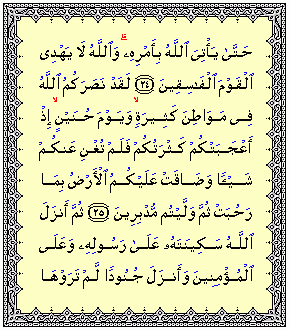 حَتَّىٰ يَأْتِيَ اللَّهُ بِأَمْرِهِۦ ۗ وَاللَّهُ لَا يَهْدِى
الْقَوْمَ الْفَٰسِقِينَ ﴿٢٤﴾ لَقَدْ نَصَرَكُمُ اللَّهُ
فِى مَوَاطِنَ كَثِيرَةٍ ۙ وَيَوْمَ حُنَيْنٍ ۙ إِذْ
أَعْجَبَتْكُمْ كَثْرَتُكُمْ فَلَمْ تُغْنِ عَنكُمْ
شَيْـًٔا وَضَاقَتْ عَلَيْكُمُ الْأَرْضُ بِمَا
رَحُبَتْ ثُمَّ وَلَّيْتُم مُّدْبِرِينَ ﴿٢٥﴾ ثُمَّ أَنزَلَ
اللَّهُ سَكِينَتَهُۥ عَلَىٰ رَسُولِهِۦ وَعَلَى
الْمُؤْمِنِينَ وَأَنزَلَ جُنُودًا لَّمْ تَرَوْهَا